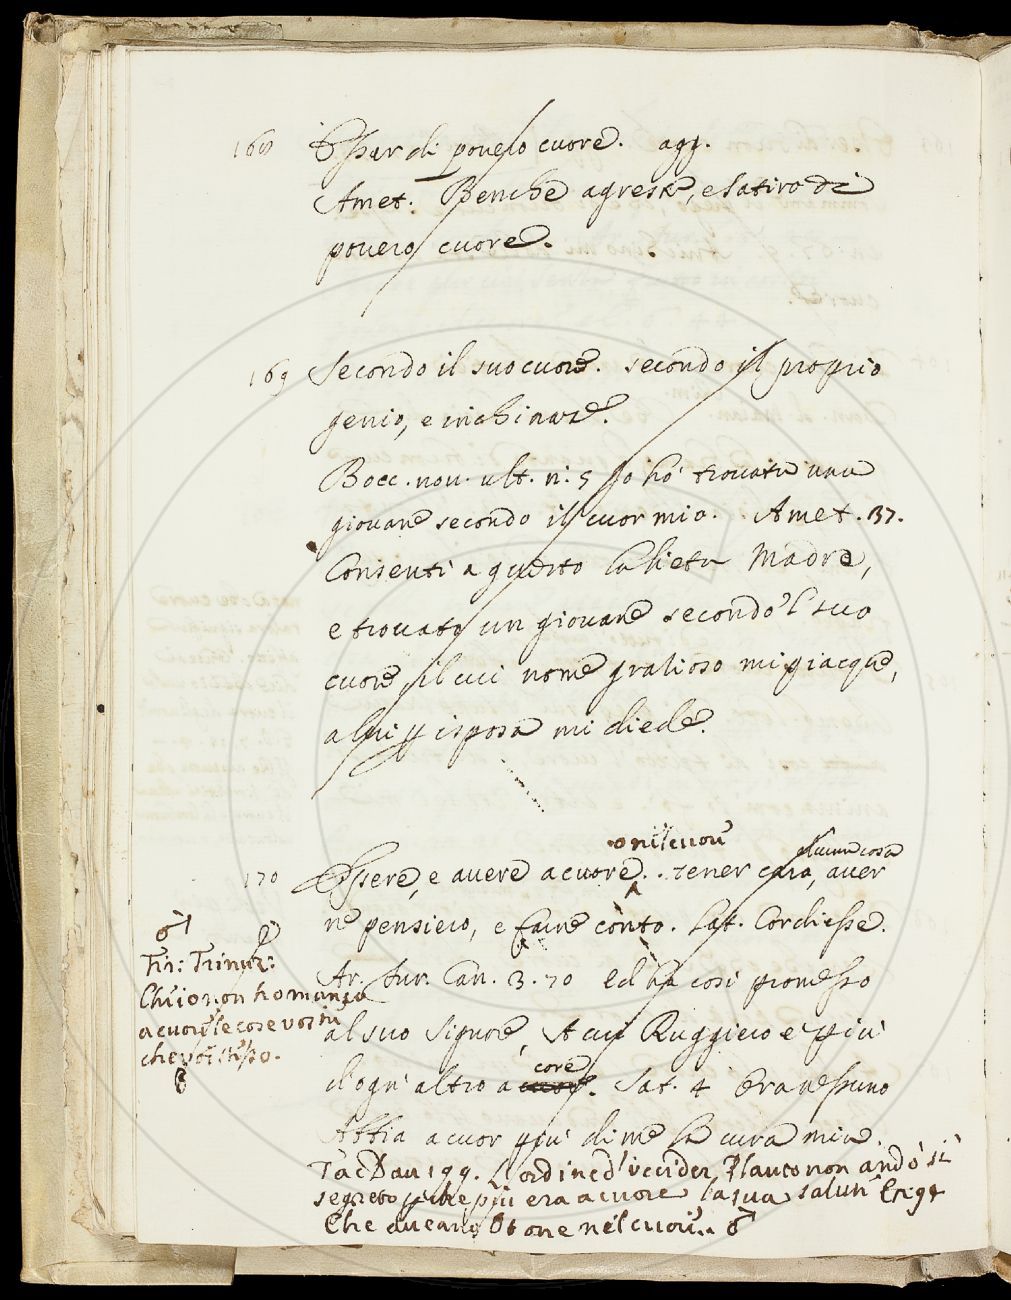 168 Esser di povero cuore. agg.
Amet. Benche agreste, e satiro di
povero cuore.
169 Secondo il suo cuore. secondo il proprio
genio, e inchinaze.
Bocc. nov. ult. n. 5 Io hò trovata una
giovane secondo il cuor mio. Amet. 37.
Consentì a questo la lieta Madre,
e trovato un giovane secondo 'l suo
cuore, il cui nome gratioso mi piacque,
a lui p isposa mi diede.
o nel cuore
alcuna cosa
170 Essere, e avere a cuore. tener cara, aver
ne pensiero, e farne conto. Lat. Cordi esse.
Ar. Fur. Can. 3. 70 ed ha così promesso
al suo Signore, A cui Ruggiero è più
d'ogn'altro a core. Sat. 4 Or a nessuno
Abbia a cuor più di me la cura mia.
Tac Dav 199. L'ordine d'uccider Plauto non andò sì
segreto p che più era a cuore la sua salute
Che aveano Otone nel cuore. ♂
♂
Fir: Trinuz:
Ch'io non ho manco
a cuore le cose vostre
che voi stesso.